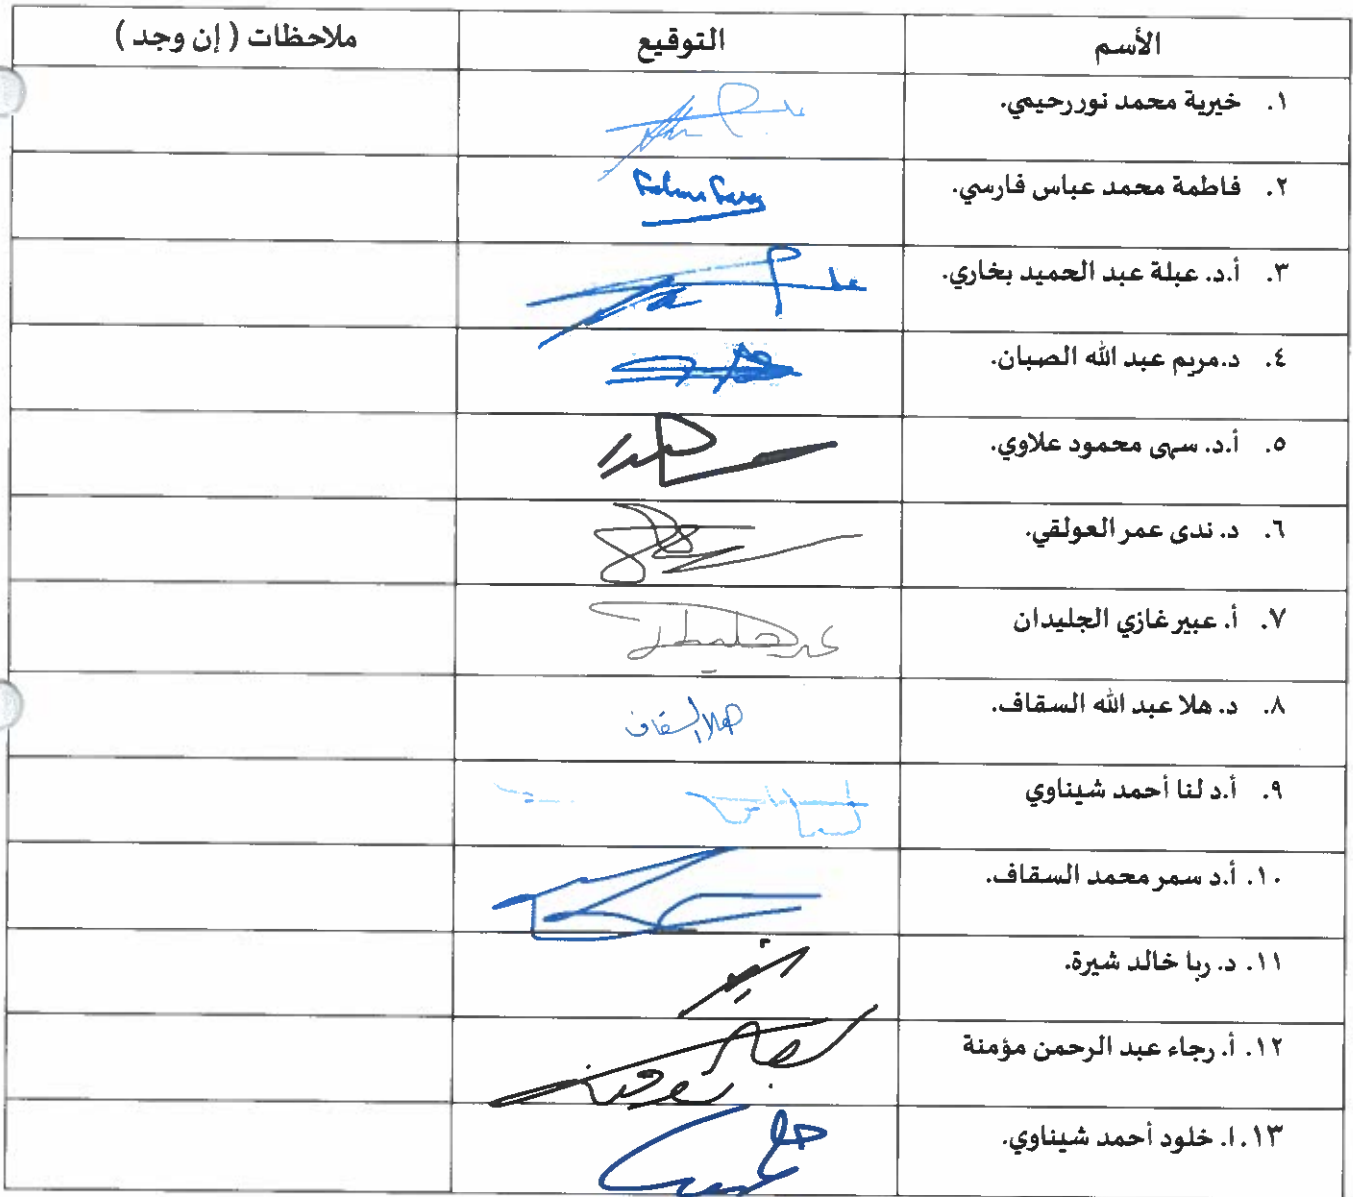 الأسم التوقيع ملاحظات ( إن وجد )
١. خيرية محمد نور رحيمي.
٢. فاطمة محمد عباس فارسي.
٣. أ.د. عبلة عبد الحميد بخاري.
٤. د.مريم عبد الله الصبان.
٥. أ.د. سهى محمود علاوي.
٦. د. ندى عمر العولقي.
٧. أ. عبير غازي الجليدان
٨. د. هلا عبد الله السقاف. هلا السقاف
٩. أ.د لنا أحمد شيناوي
١٠. أ.د سمر محمد السقاف.
١١. د. ربا خالد شيرة.
١٢. أ. رجاء عبد الرحمن مؤمنة
١٣.ا. خلود أحمد شيناوي.